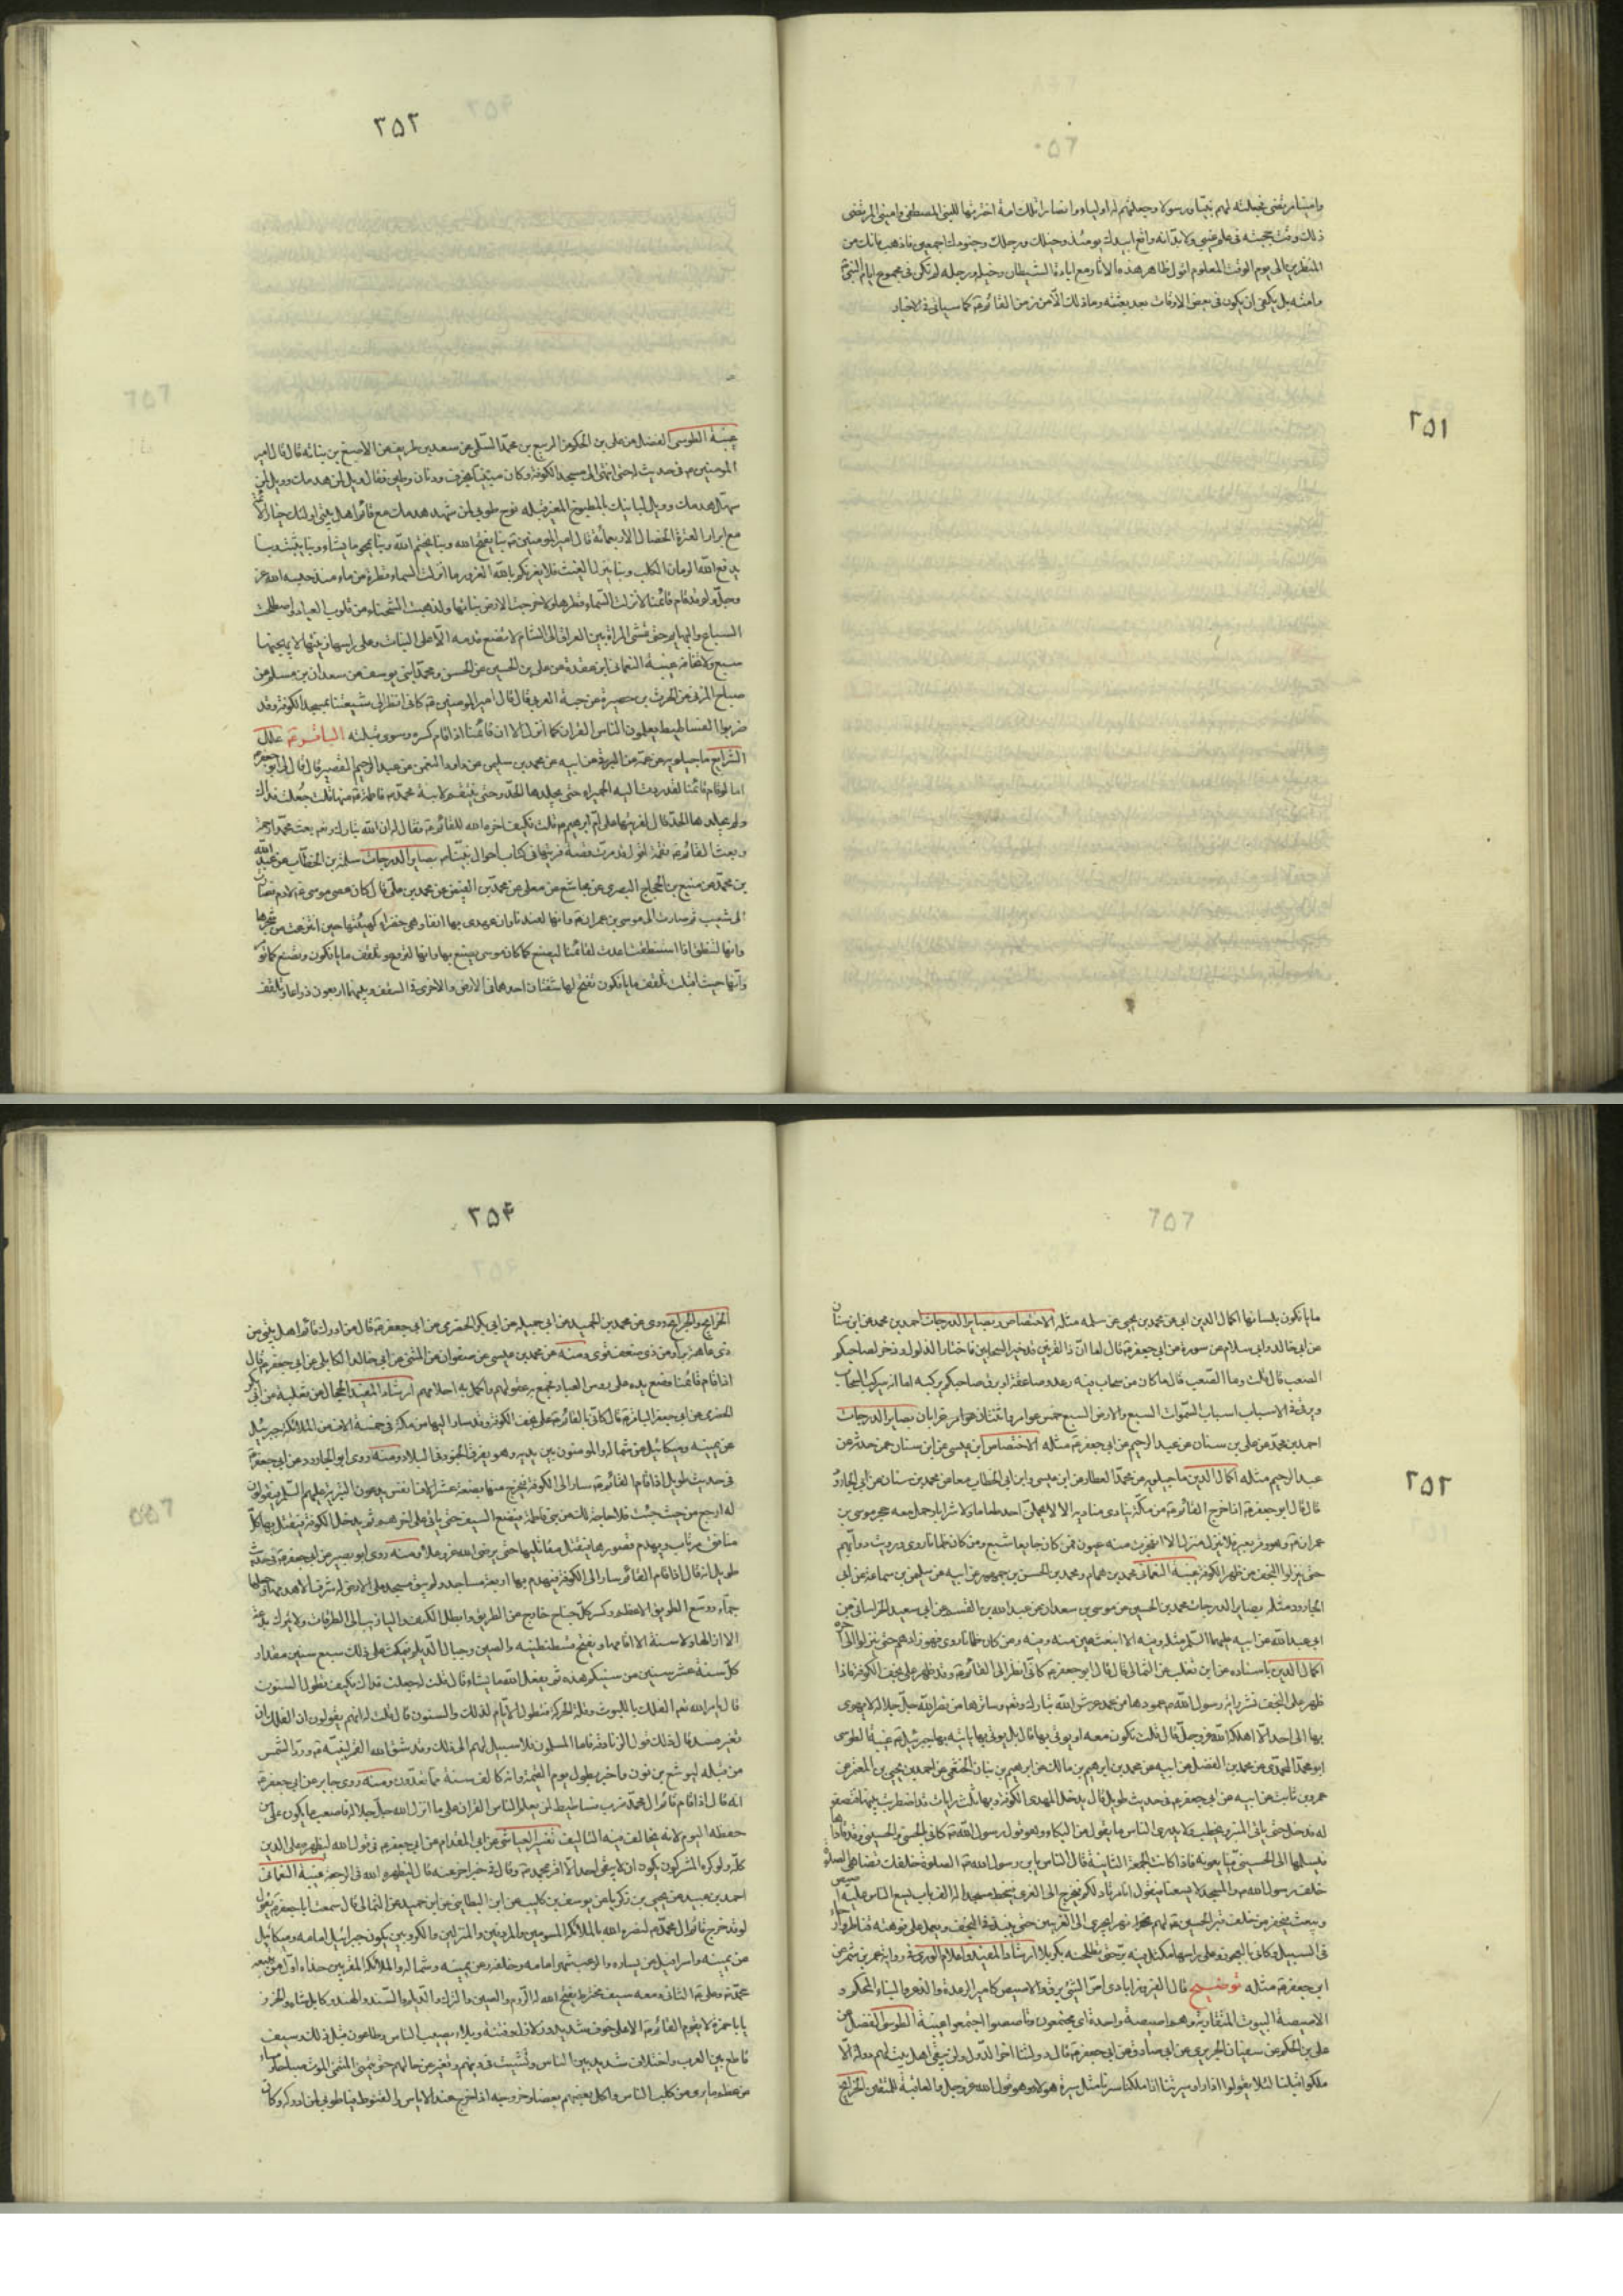 وامينا مرتضى فجعلته لهم نبيا ورسولا وجعلتهم له اولياء وانصارا تلك امة اخترتها للنبى المصطفى وامينى المرتضى
ذلك وقت حجبته فى علم غيبى ولا بد انه واقع ابيدك يومئذ وخيلك ورجلك وجنودك اجمعين فاذهب فانك من
المنظرين الى يوم الوقت المعلوم اقول ظاهر هذه الاثار مع ابادة الشيطان وخيله ورجله لم تكن فى مجموع ايام النبى
وامته بل يكفى ان يكون فى بعض الاوقات بعد بعثته وما ذلك الا من زمن القائم ع كما سياتى فى الاخبار
٢٥١
٢٥٢
غيبة الطوسى الفضل عن على بن الحكم عن الربيع بن محمد المسلى عن سعد بن طريف عن الاصبغ بن نباته قال قال امير
المومنين ع فى حديث له حتى انتهى الى مسجد الكوفة وكان مبنيا بخزف ودنان وطين فقال ويل لمن هدمك وويل لمن
سهل هدمك وويل لبانيك بالمطبوخ المغير قبلة نوح طوبى لمن شهد هدمك مع قائم اهل بيتى اولئك خيار الامة
مع ابرار العترة الخصال الاربعمائة قال امير المومنين ع بنا يفتح الله وبنا يختم الله وبنا يمحو ما يشاء وبنا يثبت وبنا
يدفع الله الزمان الكلب وبنا ينزل الغيث فلا يغرنكم بالله الغرور ما انزلت السماء قطرة من ماء منذ حبسه الله عز
وجل ولو قد قام قائمنا لانزلت السماء قطرها ولاخرجت الارض نباتها ولذهبت الشحناء من قلوب العباد واصطلحت
السباع والبهايم حتى تمشى المراة بين العراق الى الشام لا تضع قدميها الا على النبات وعلى راسها زينتها لا يهيجها
سبع ولا تخافه غيبة النعمانى ابن عقدة عن على بن الحسين عن الحسن ومحمد ابنى يوسف عن سعدان بن مسلم عن
صباح المزنى عن الحرث بن حصيرة عن حبة العرنى قال قال امير المومنين ع كانى انظر الى شيعتنا بمسجد الكوفة وقد
ضربوا الفساطيط يعلمون الناس القران كما انزل الا ان قائمنا اذا قام كسره وسوى قبلته الباقر ع علل
الشرايع ماجيلويه عن عمه عن البرقى عن ابيه عن محمد بن سليمن عن داود النعمن عن عبد الرحيم القصير قال قال لى ابو جعفر
اما لو قام قائمنا لقد ردت اليه الحميراء حتى يجلدها الحد وحتى ينتقم لابنة محمد فاطمة ع منها قلت جعلت فداك
ولم يجلدها الحد قال لفريتها على ام ابرهيم قلت فكيف اخره الله للقائم ع فقال لان الله تبارك وتع بعث محمدا رحمة
وبعث القائم ع نقمة اقول قد مرت قصة فريتها فى كتاب احوال نبينا بصاير الدرجات سلمة بن الخطاب عن عبد الله
بن محمد عن منيع بن الحجاج البصرى عن مجاشع عن معلى عن محمد بن الفيض عن محمد بن على قال كان عصى موسى ع لادم فصارت
الى شعيب ثم صارت الى موسى بن عمران ع وانها لعندنا وان عهدى بها انفا وهى خضراء كهيئتها حين انتزعت من شجرها
وانها لتنطق اذا استنطقت اعدت لقائمنا ليصنع كما كان موسى يصنع بها وانها لتروع وتلقف ما يافكون وتصنع كما تؤمر
وانها حيث اقبلت تلقف ما يافكون تفتح لها شفتان احدهما فى الارض والاخرى فى السقف وبينهما اربعون ذراعا وتلقف
ما يافكون بلسانها اكمال الدين ابى عن محمد بن يحيى عن سلمه مثله الاختصاص وبصاير الدرجات احمد بن محمد عن ابن سنان
عن ابى خالد وابى سلام عن سورة عن ابى جعفر ع قال اما ان ذا القرنين قد خير السحابين فاختار الذلول وذخر لصاحبكم
الصعب قال قلت وما الصعب قال ما كان من سحاب فيه رعد وصاعقة او برق فصاحبكم يركبه اما انه سيركب السحاب
ويرقى فى الاسباب اسباب السموات السبع والارضين السبع خمس عوامر واثنتان خرابان بصاير الدرجات
احمد بن محمد عن على بن سنان عن عبد الرحيم عن ابى جعفر ع مثله الاختصاص ابن عيسى عن ابن سنان عمن حدثه عن
عبد الرحيم مثله اكمال الدين ماجيلويه عن محمد العطار عن ابن عيسى وابن ابى الخطاب معا عن محمد بن سنان عن ابى الجارود
قال قال ابو جعفر ع اذا خرج القائم ع من مكة ينادى مناديه الا لا يحملن احد طعاما ولا شرابا وحمل معه حجر موسى بن
عمران ع وهو وقر بعير فلا ينزل منزلا الا انفجرت منه عيون فمن كان جايعا شبع ومن كان ظمانا روى ورويت دوابهم
حتى ينزلوا النجف من ظهر الكوفة غيبة النعمانى محمد بن همام ومحمد بن الحسن بن جمهور عن ابيه عن سليمن بن سماعة عن ابى
الجارود مثله بصاير الدرجات محمد بن الحسين عن موسى بن سعدان عن عبد الله بن القسم عن ابى سعيد الخراسانى عن
ابى عبد الله عن ابيه عليهما السلم مثله وفيه الا انبعث عين منه وفيه ومن كان ظمانا روى فهو زادهم حتى ينزلوا الى اخره
اكمال الدين باسناده عن ابن تغلب عن الثمالى قال قال ابو جعفر ع كانى انظر الى القائم ع وقد ظهر على نجف الكوفة فاذا
ظهر على النجف نشر راية رسول الله ص عمودها من عمد عرش الله تبارك وتع وسائرها من نصر الله جل جلاله لا يهوى
بها الى احد الا اهلكه الله عز وجل قال قلت تكون معه او يوتى بها قال بل يوتى بها ياتيه بها جبرئيل ع غيبة الطوسى
ابو محمد المحمدى عن محمد بن الفضل عن ابيه عن محمد بن ابرهيم بن مالك عن ابرهيم بن بنان الخثعمى عن احمد بن يحيى بن المعتمر عن
عمرو بن ثابت عن ابيه عن ابى جعفر ع فى حديث طويل قال يدخل المهدى الكوفة وبها ثلث رايات قد اضطربت بينها فتصفو
له فيدخل حتى ياتى المنبر ويخطب ولا يدرى الناس ما يقول من البكاء وهو قول رسول الله ص كانى بالحسنى والحسينى وقد قاداها
فيسلمها الى الحسينى فيبايعونه فاذا كانت الجمعة الثانية قال الناس يابن رسول الله ص الصلوة خلفك تضاهى الصلوة
خلف رسول الله ص والمسجد لا يسعنا فيقول انا مرتاد لكم فيخرج الى الغرى فيخط مسجدا له الف باب يسع الناس عليه اصيص
ويبعث فيحفر من خلف قبر الحسين ع لهم نهرا يجرى الى الغريين حتى ينبذ فى النجف ويعمل على فوهته قناطر وارحاء
فى السبيل وكانى بالعجوز وعلى راسها مكتل فيه بر حتى تطحنه بكربلا ارشاد المفيد واعلام الورى فى رواية عمرو بن شمر عن
ابى جعفر ع مثله توضيح قال الفيروزابادى اص الشئ برق والاصيص كامير الرعدة والذعر والبناء المحكم و
الاصيصة البيوت المتقاربة وهم اصيصة واحدة اى يجتمعون وتاصصوا اجتمعوا غيبة الطوسى الفضل عن
على بن الحكم عن سفيان الجريرى عن ابى صادق عن ابى جعفر ع قال دولتنا اخر الدول ولن يبقى اهل بيت لهم دولة الا
ملكوا قبلنا لئلا يقولوا اذا راوا سيرتنا اذا ملكنا سرنا مثل سيرة هولاء وهو قول الله عز وجل والعاقبة للمتقين الخرايج
٢٥٣
٢٥٤
الخرايج والجرايح روى عن محمد بن الحميد عن ابى جميله عن ابى بكر الحضرمى عن ابى جعفر ع قال من ادرك قائم اهل بيتى من
ذى عاهة برا ومن ذى ضعف قوى ومنه عن محمد بن عيسى عن صفوان عن المثنى عن ابى خالد الكابلى عن ابى جعفر ع قال
اذا قام قائمنا وضع يده على روس العباد فجمع به عقولهم واكمل به احلامهم ارشاد المفيد الحجال عن ثعلبة عن ابى بكر
الحضرمى عن ابى جعفر الباقر ع قال كانى بالقائم ع على نجف الكوفة وقد سار اليها من مكة فى خمسة الاف من الملائكة جبرئيل
عن يمينه وميكائيل عن شماله والمومنون بين يديه وهو يفرق الجنود فى البلاد ومنه روى ابو الجارود عن ابى جعفر ع
فى حديث طويل اذا قام القائم ع سار الى الكوفة فيخرج منها بضعة عشر الف انفس يدعون البترية عليهم السلاح فيقولون
له ارجع من حيث جئت فلا حاجة لنا فى بنى فاطمة فيضع السيف حتى ياتى على اخرهم ثم يدخل الكوفة فيقتل بها كل
منافق مرتاب ويهدم قصورها ويقتل مقاتليها حتى يرضى الله عز وعلا ومنه روى ابو بصير عن ابى جعفر ع فى حديث
طويل انه قال اذا قام القائم سار الى الكوفة فيهدم بها اربعة مساجد ولم يبق مسجد على الارض له شرف الا هدمها وجعلها
جماء ووسع الطريق الاعظم وكسر كل جناح خارج عن الطريق وابطل الكنف والميازيب الى الطرقات ولا يترك بدعة
الا ازالها ولا سنة الا اقامها ويفتح قسطنطينيه والصين وجبال الديلم فيمكث على ذلك سبع سنين مقدار
كل سنة عشر سنين من سنيكم هذه ثم يفعل الله ما يشاء قال قلت له جعلت فداك فكيف تطول السنون
قال يامر الله تع الفلك باللبوث وقلة الحركة فتطول الايام لذلك والسنون قال قلت له انهم يقولون ان الفلك ان
تغير فسد قال ذلك قول الزنادقة فاما المسلمون فلا سبيل لهم الى ذلك وقد شق الله القمر لنبيه ص ورد الشمس
من قبله ليوشع بن نون واخبر بطول يوم القيمة وانه كالف سنة مما تعدون ومنه روى جابر عن ابى جعفر ع
انه قال اذا قام قائم ال محمد ضرب فساطيط لمن يعلم الناس القران على ما انزل الله جل جلاله فاصعب ما يكون على من
حفظه اليوم لانه يخالف فيه التاليف تفسير العياشى عن ابى المقدام عن ابى جعفر ع فى قول الله ليظهره على الدين
كله ولو كره المشركون يكون ان لا يبقى احد الا اقر بمحمد ص وقال فى خبر اخر عنه قال ليظهره الله فى الرجعة غيبة النعمانى
احمد بن عبيد عن يحيى بن زكريا عن يوسف بن كليب عن ابن البطاينى عن ابن حميد عن الثمالى قال سمعت ابا جعفر ع يقول
لو قد خرج قائم ال محمد ع لنصره الله بالملائكة المسومين والمردفين والمنزلين والكروبيين يكون جبرائيل امامه وميكائيل
عن يمينه واسرافيل عن يساره والرعب شهر امامه وخلفه وعن يمينه وشماله والملائكة المقربين حذاه اول من يتبعه
محمد ص وعلى ع الثانى ومعه سيف مخترط يفتح الله له الروم والصين والترك والديلم والسند والهند وكابل شاه والخزر
يابا حمزة لا يقوم القائم ع الا على خوف شديد وزلازل وفتنة وبلاء يصيب الناس وطاعون قبل ذلك وسيف
قاطع بين العرب واختلاف شديد بين الناس وتشتت فى دينهم وتغير من حالهم حتى يتمنى المتمنى الموت صباحا ومساء
من عظم ما يرى من كلب الناس واكل بعضهم بعضا وخروجه اذا خرج عند الاياس والقنوط فيا طوبى لمن ادركه وكان